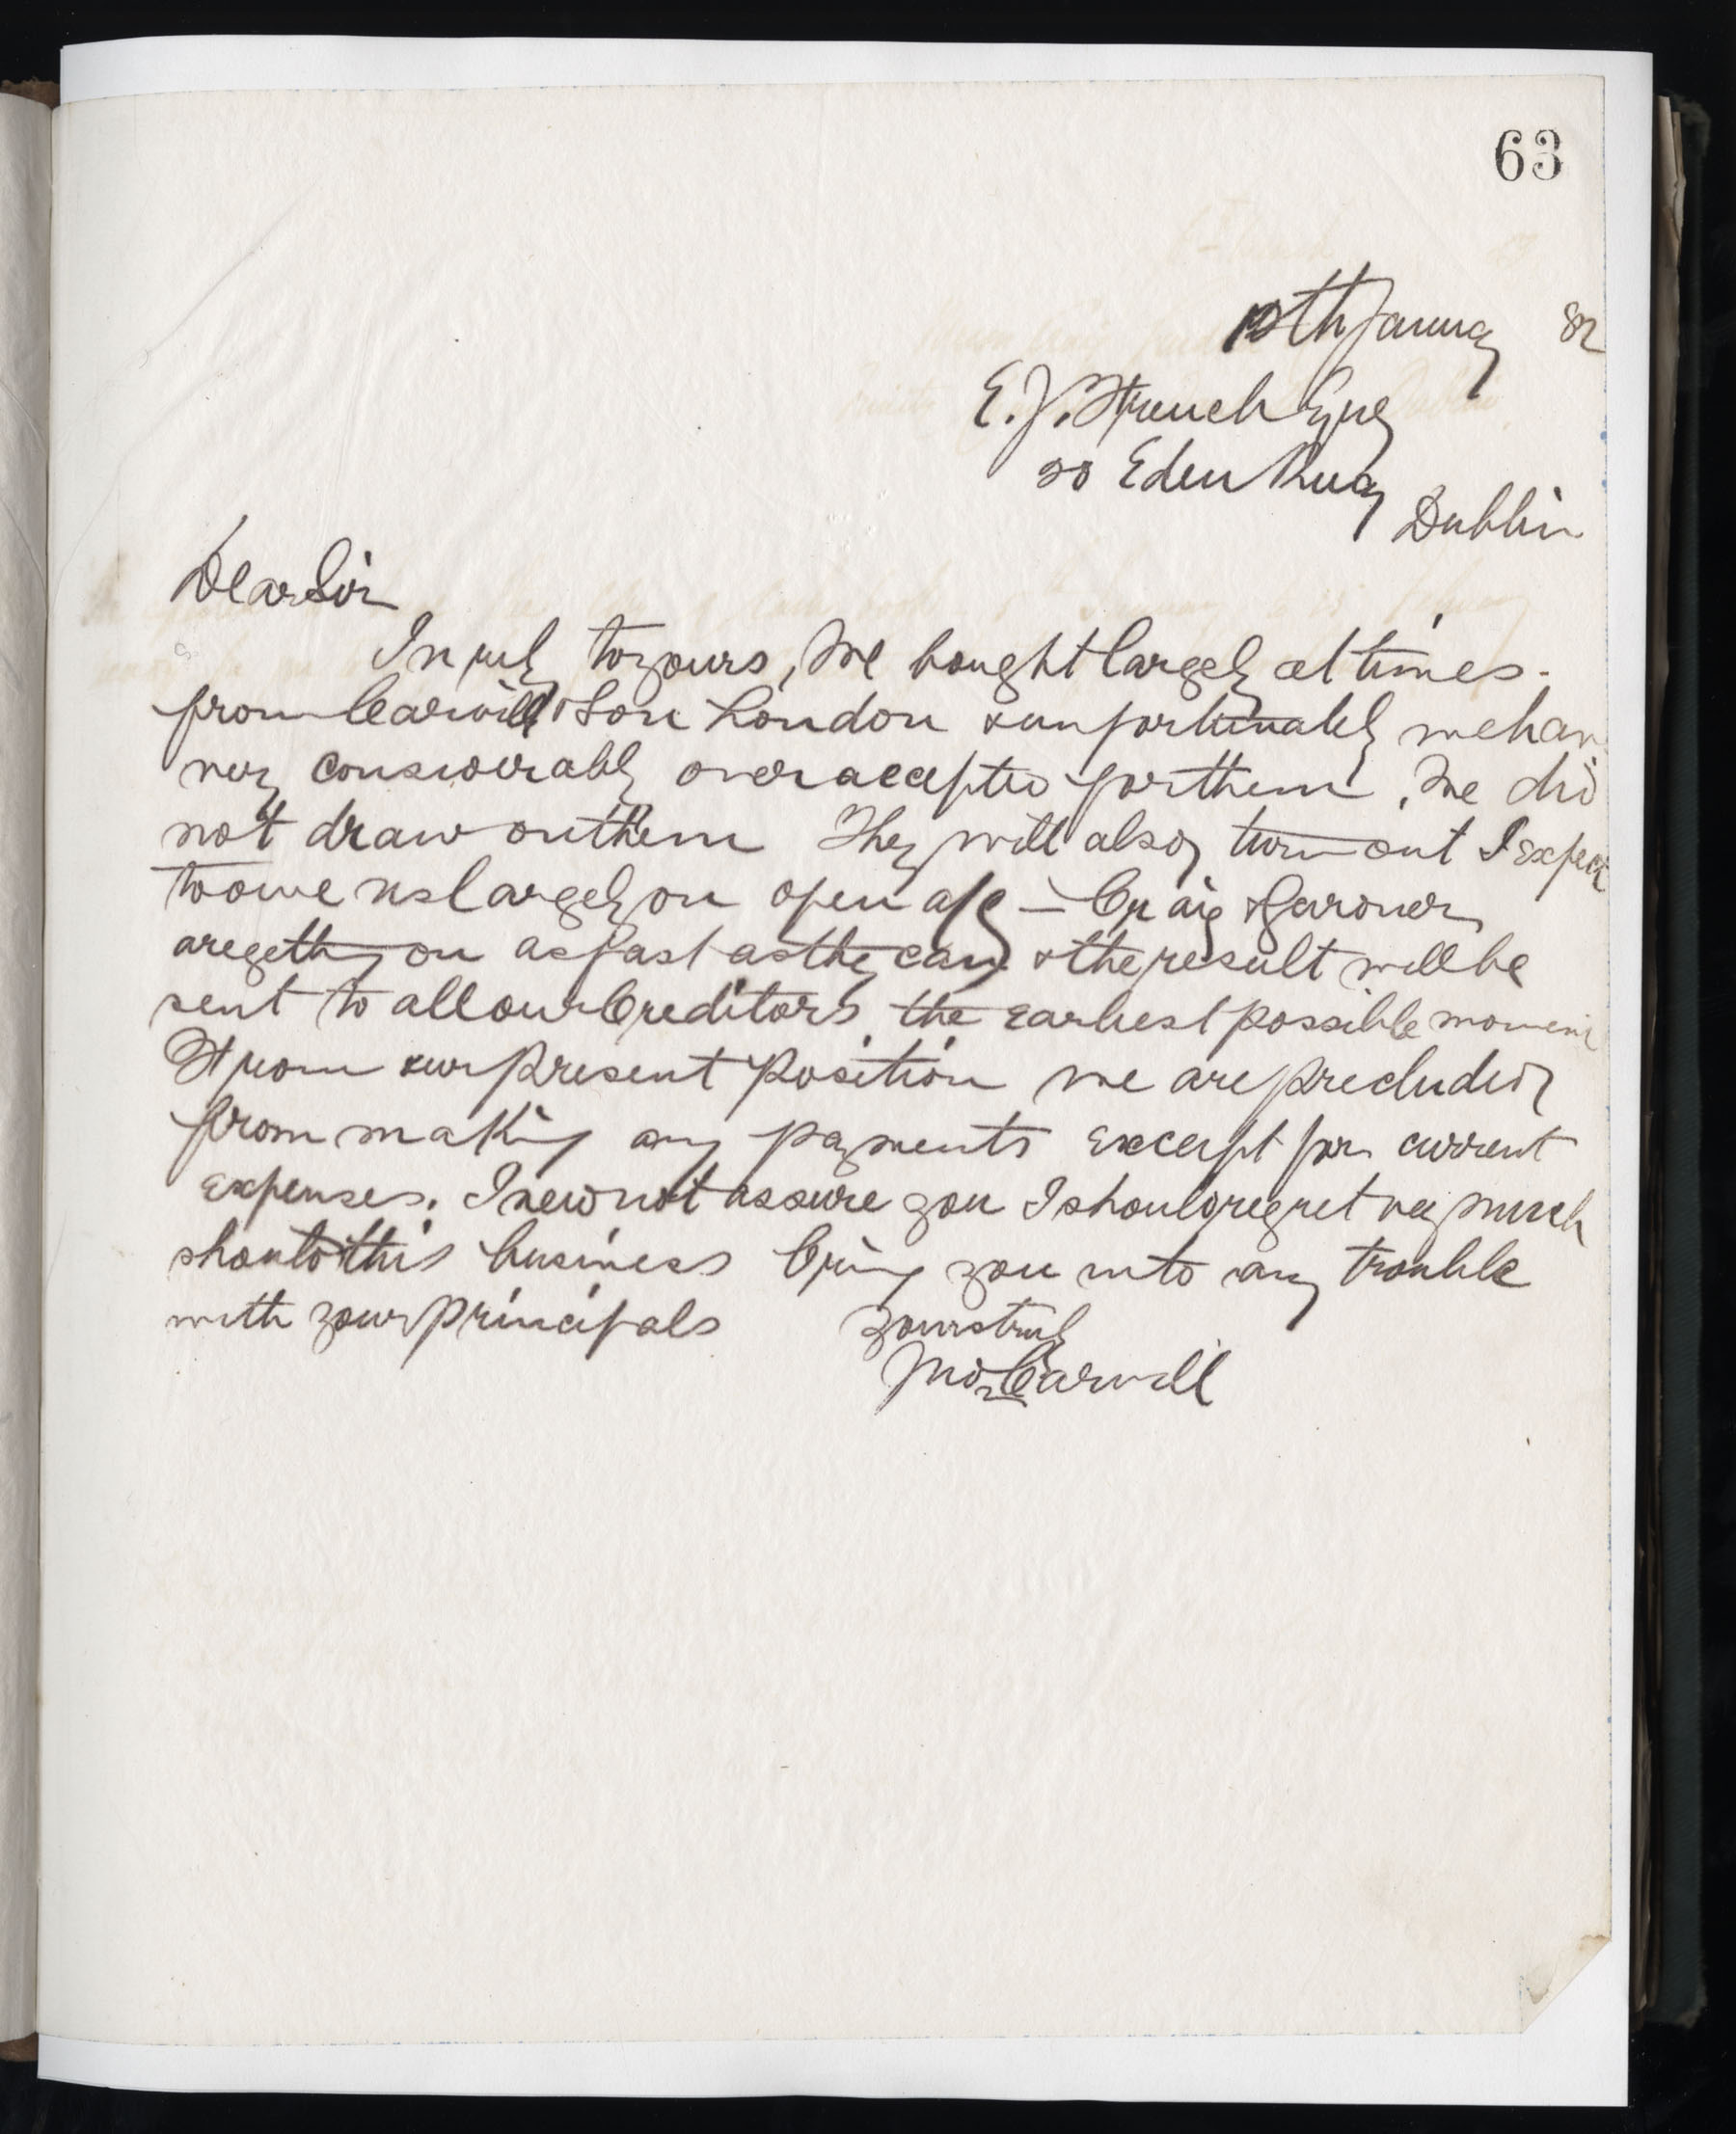 63
10th January 82
E. J. French Esq
20 Eden Quay
Dublin
Dear Sir
In reply to yours, We bought largely at times
from Carvill & Son London & unfortunately we have
very considerably over accepted for them. We did
not draw on them They will also turn out I expect
to owe us largely on open a/c – Craig & Gardner
are getting on as fast as they can & the result will be
sent to all our Creditors the earliest possible moment
From our present position we are precluded
from making any payments except for current
expenses. I need not assure you I should regret very much
should this business bring you into any trouble
with your principals
Yours truly
Carvill